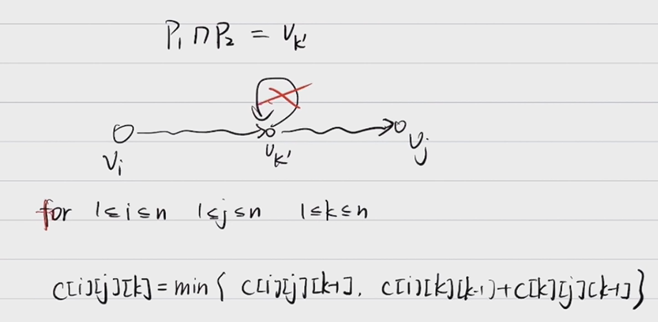 P₁ ∩ P₂ = V_k'
V_i V_k' V_j
for 1≤i≤n 1≤j≤n 1≤k≤n
C[i][j][k] = min { C[i][j][k-1], C[i][k][k-1]+C[k][j][k-1] }